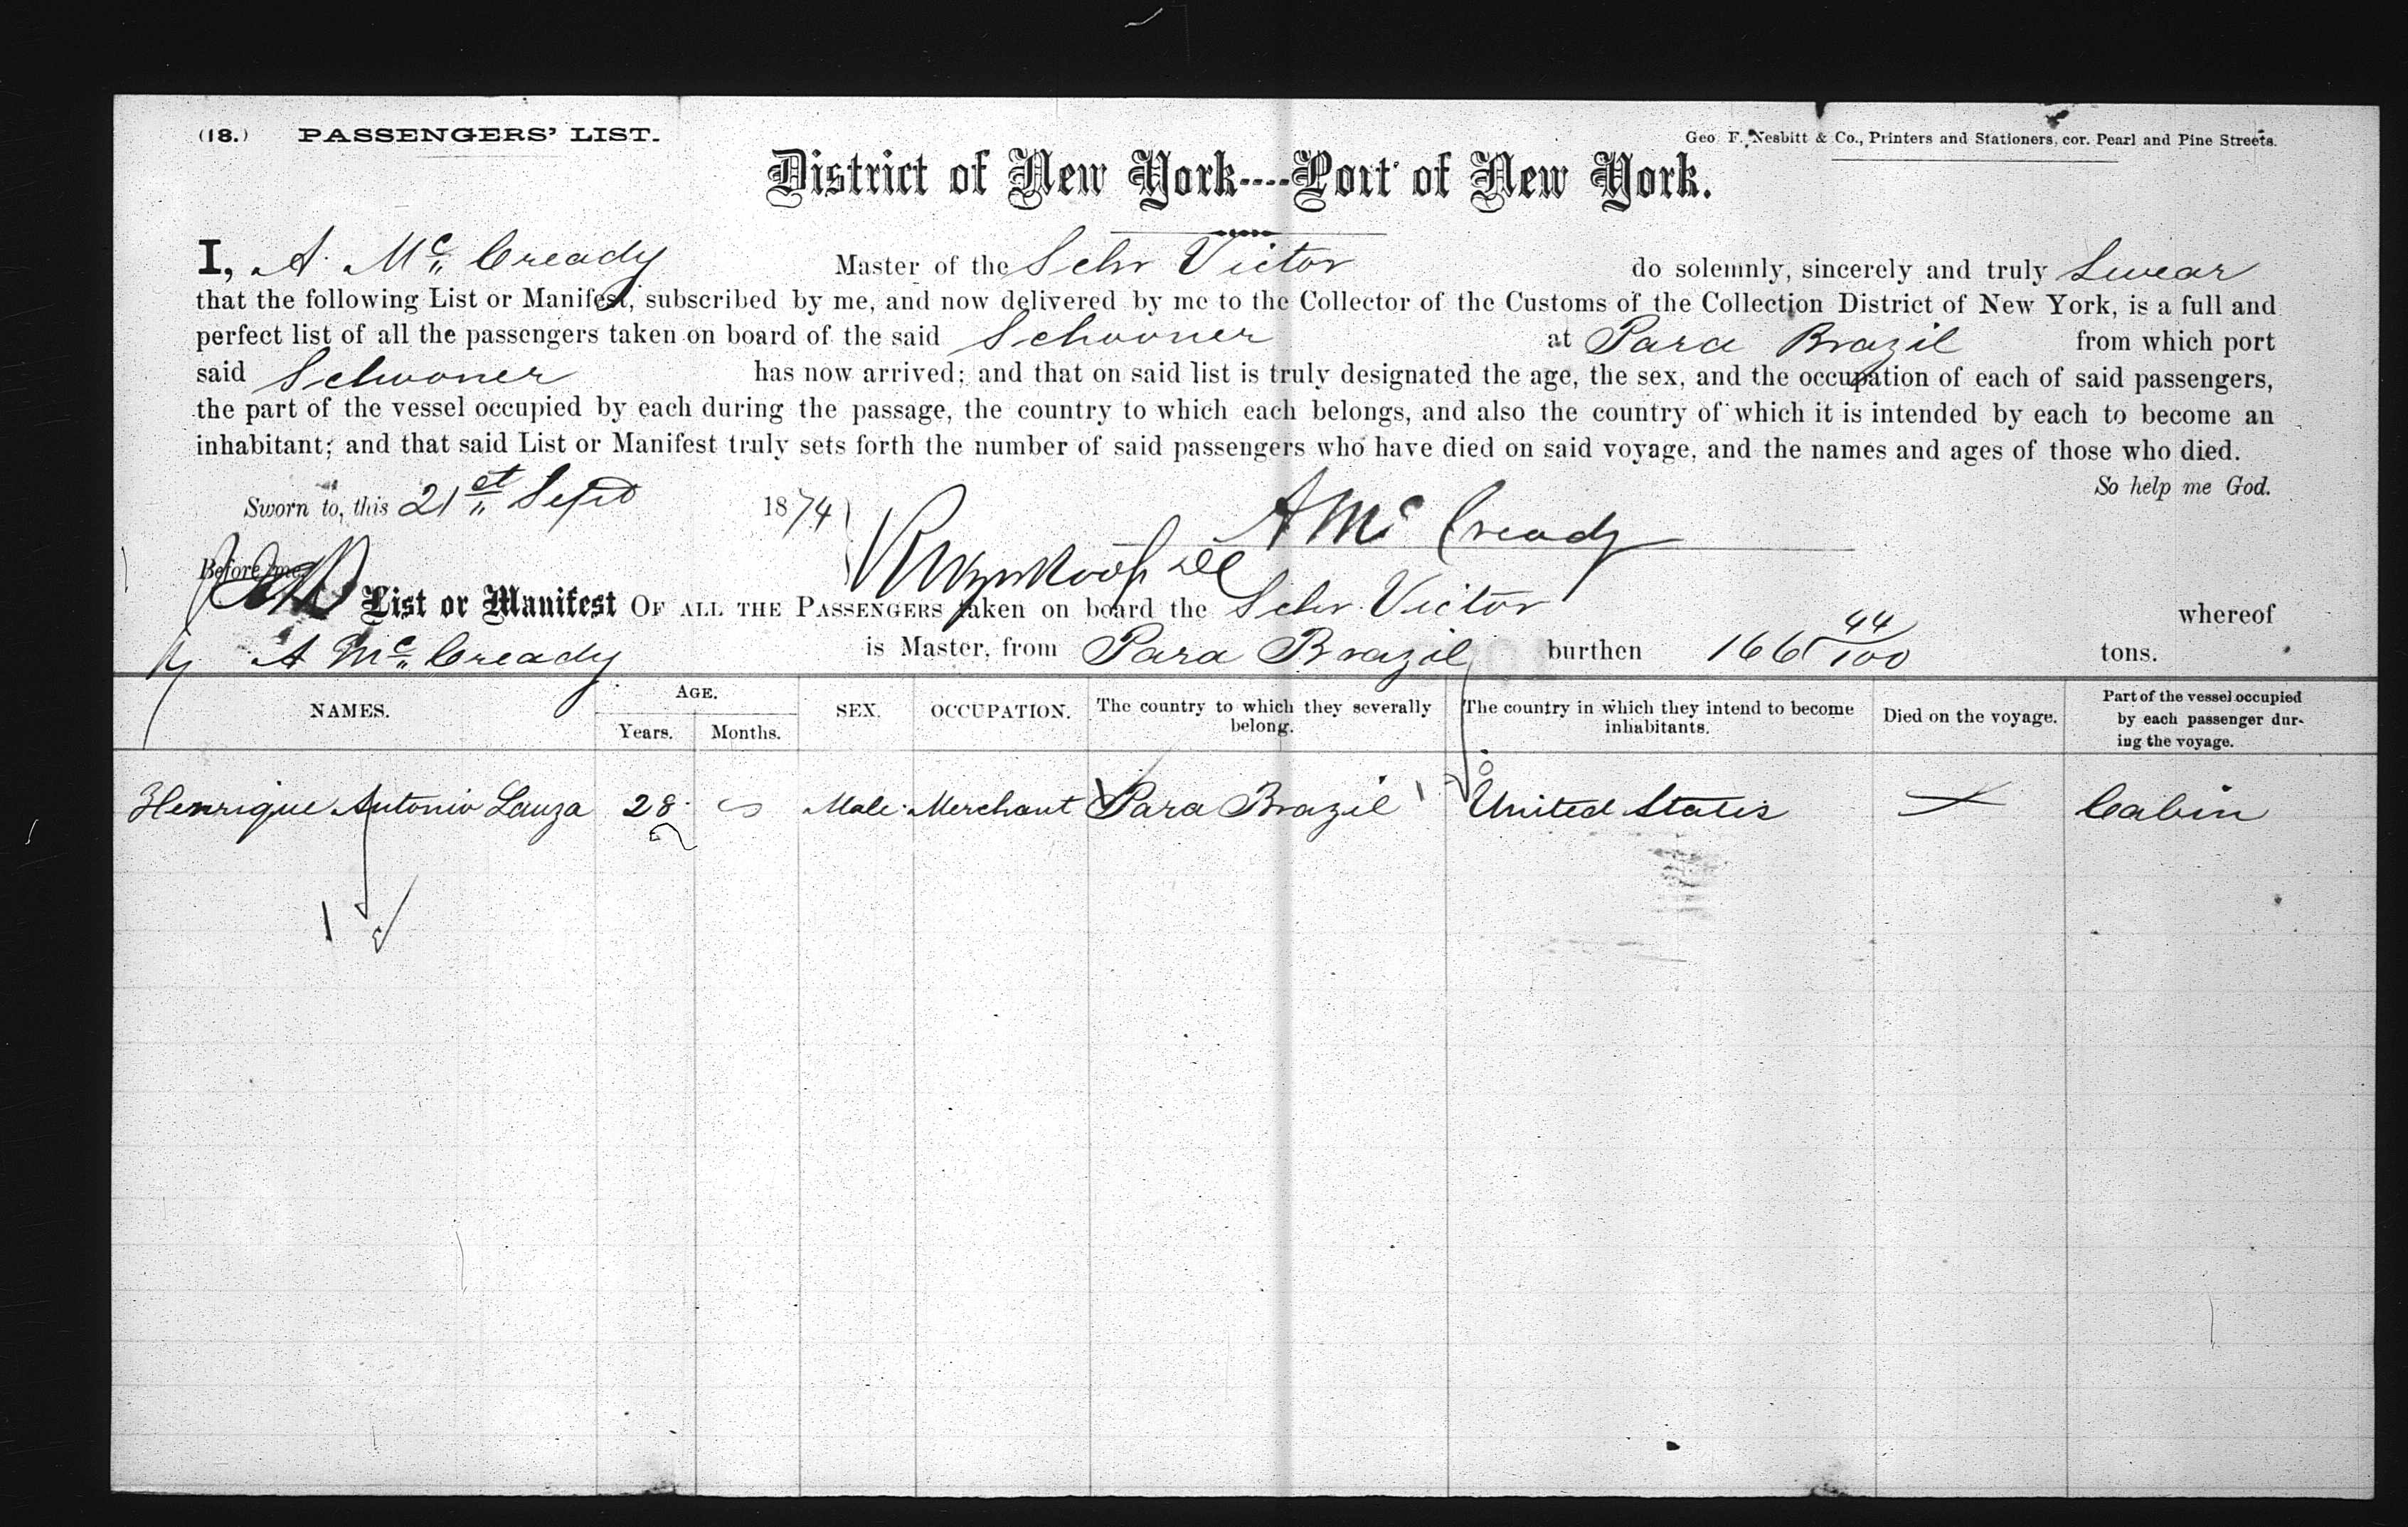 (18.) PASSENGERS' LIST.
Geo. F. Nesbitt & Co., Printers and Stationers, cor. Pearl and Pine Streets.
District of New York----Port of New York.
I, A. Mc Cready Master of the Schr Victor do solemnly, sincerely and truly Swear
that the following List or Manifest, subscribed by me, and now delivered by me to the Collector of the Customs of the Collection District of New York, is a full and
perfect list of all the passengers taken on board of the said Schooner at Para Brazil from which port
said Schooner has now arrived; and that on said list is truly designated the age, the sex, and the occupation of each of said passengers,
the part of the vessel occupied by each during the passage, the country to which each belongs, and also the country of which it is intended by each to become an
inhabitant; and that said List or Manifest truly sets forth the number of said passengers who have died on said voyage, and the names and ages of those who died.
So help me God.
Sworn to, this 21st Sept 1874
A Mc Cready
Before me,
List or Manifest OF ALL THE PASSENGERS taken on board the Schr Victor whereof
A Mc Cready is Master, from Para Brazil burthen 166 44/100 tons.
NAMES. AGE. Years. Months. SEX. OCCUPATION. The country to which they severally belong. The country in which they intend to become inhabitants. Died on the voyage. Part of the vessel occupied by each passenger during the voyage.
Henrique Antonio Lauza 28 Male Merchant Para Brazil United States Cabin